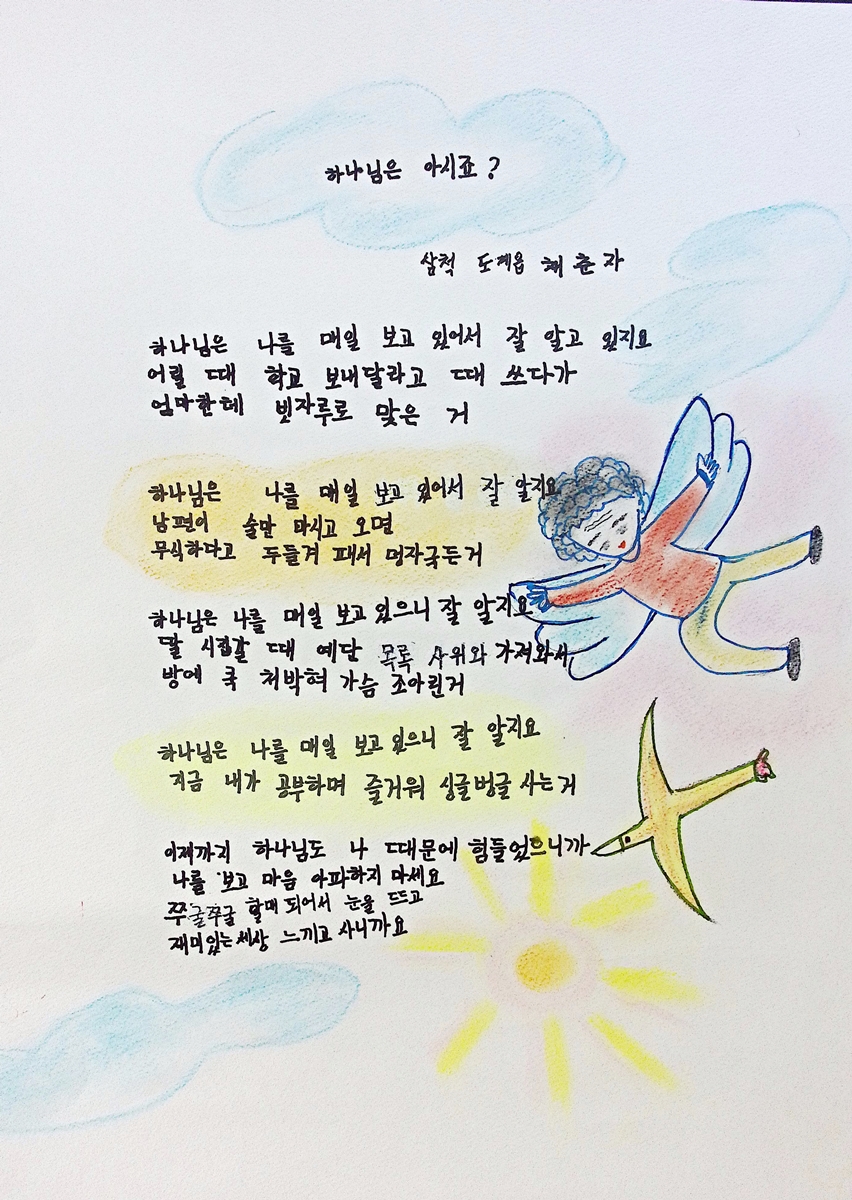 하나님은 아시죠?
삼척 도계읍 채춘자
하나님은 나를 매일 보고 있어서 잘 알고 있지요
어릴 때 학교 보내달라고 떼 쓰다가
엄마한테 빗자루로 맞은 거
하나님은 나를 매일 보고 있어서 잘 알지요
남편이 술만 마시고 오면
무식하다고 두들겨 패서 멍자국든거
하나님은 나를 매일 보고 있으니 잘 알지요
딸 시집갈 때 예단 목록 사위와 가져와서
방에 쿡 처박혀 가슴 조아린거
하나님은 나를 매일 보고 있으니 잘 알지요
지금 내가 공부하며 즐거워 싱글벙글 사는거
이제까지 하나님도 나 때문에 힘들었으니까
나를 보고 마음 아파하지 마세요
쭈글쭈글 할매 되어서 눈을 뜨고
재미있는 세상 느끼고 사니까요